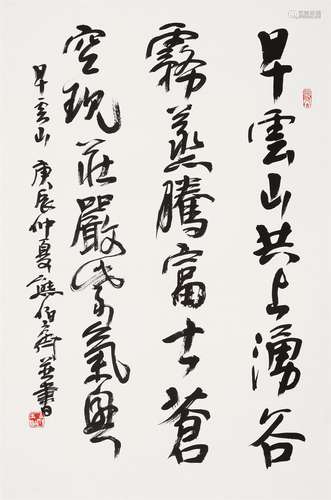 早雲山共上湧谷
霧蒸騰富士蒼
空現莊嚴紫氣興
早雲山 庚辰仲夏熊伯齊並書